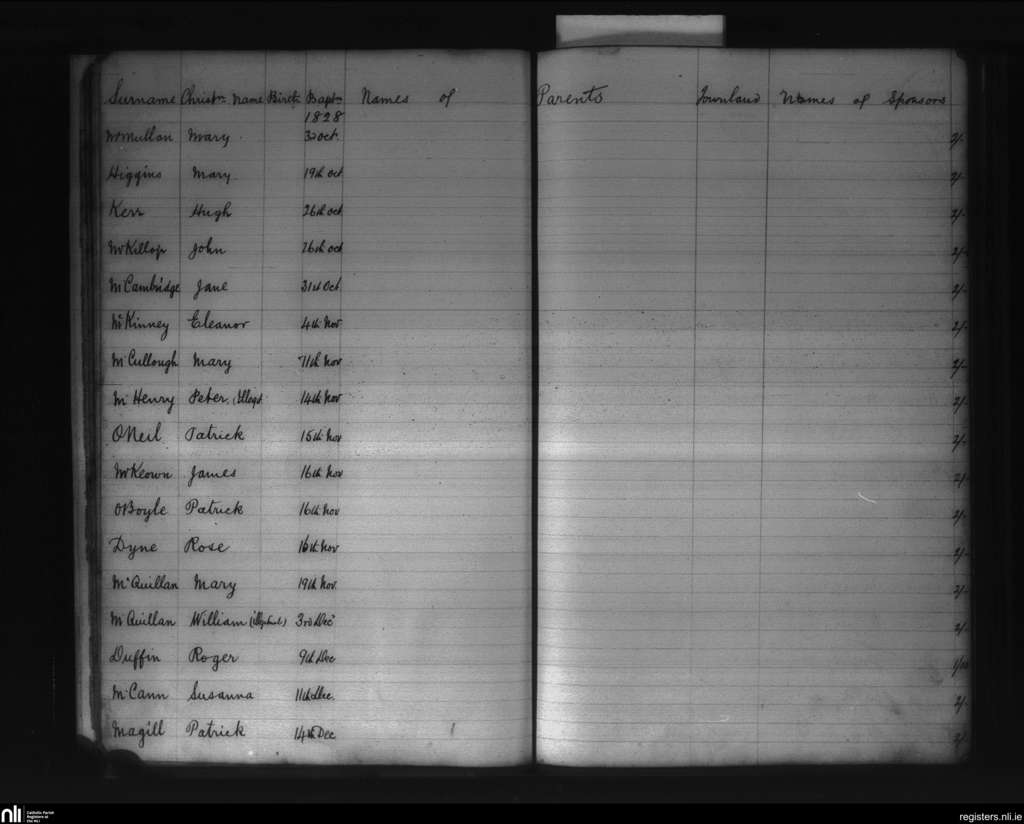 Surname Christn Name Birth Baptm Names of Parents Townland Names of Sponsors
1828
McMullan Mary 3 oct. 2/-
Higgins Mary 19th oct 2/-
Kerr Hugh 26th oct 2/-
McKillop John 26th oct 2/-
McCambridge Jane 31st Oct 2/-
McKinney Eleanor 4th Nov 2/-
McCullough Mary 11th Nov 2/-
McHenry Peter (Illegt. 14th Nov 2/-
ONeil Patrick 15th Nov 2/-
McKeown James 16th Nov 2/-
OBoyle Patrick 16th Nov 2/-
Dyne Rose 16th Nov 2/-
McQuillan Mary 19th Nov. 2/-
McQuillan William 3rd Dec 2/-
Duffin Roger 9th Dec
McCann Susanna 11th Dec. 2/-
Magill Patrick 14th Dec 2/-
nli Catholic Parish
Registers at
the NLI
registers.nli.ie